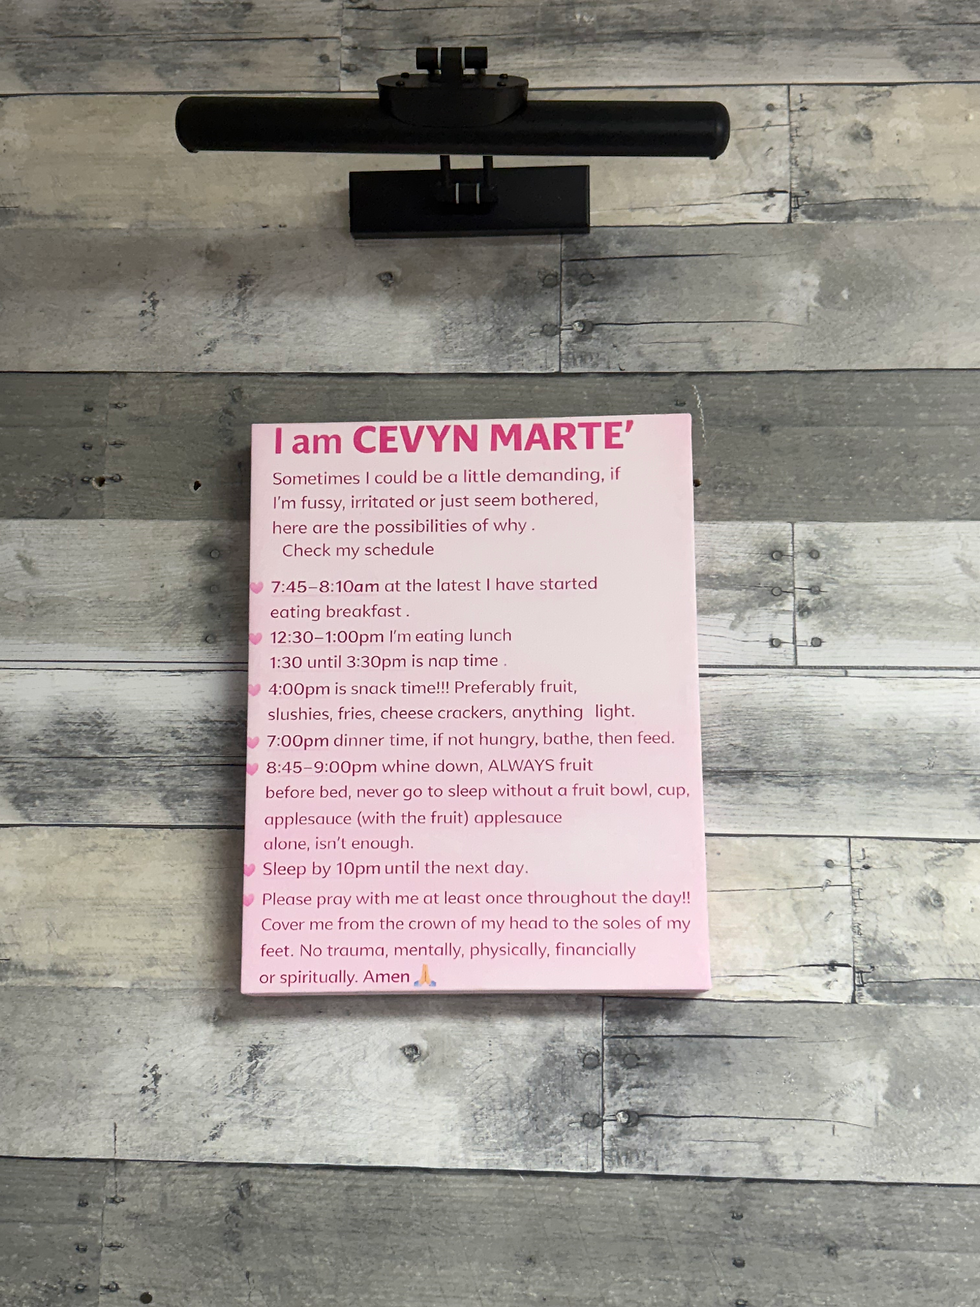 I am CEVYN MARTE’
Sometimes I could be a little demanding, if
I’m fussy, irritated or just seem bothered,
here are the possibilities of why .
Check my schedule
7:45–8:10am at the latest I have started
eating breakfast .
12:30–1:00pm I’m eating lunch
1:30 until 3:30pm is nap time .
4:00pm is snack time!!! Preferably fruit,
slushies, fries, cheese crackers, anything light.
7:00pm dinner time, if not hungry, bathe, then feed.
8:45–9:00pm whine down, ALWAYS fruit
before bed, never go to sleep without a fruit bowl, cup,
applesauce (with the fruit) applesauce
alone, isn’t enough.
Sleep by 10pm until the next day.
Please pray with me at least once throughout the day!!
Cover me from the crown of my head to the soles of my
feet. No trauma, mentally, physically, financially
or spiritually. Amen 🙏